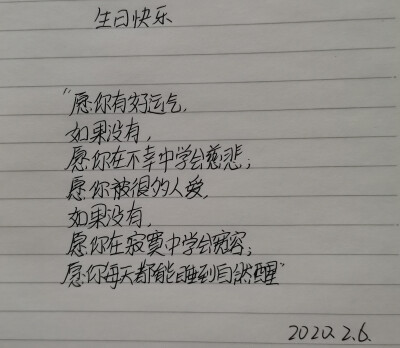 生日快乐
"愿你有好运气,
如果没有,
愿你在不幸中学会慈悲;
愿你被很多人爱,
如果没有,
愿你在寂寞中学会宽容;
愿你每天都能睡到自然醒"
2020.2.6.